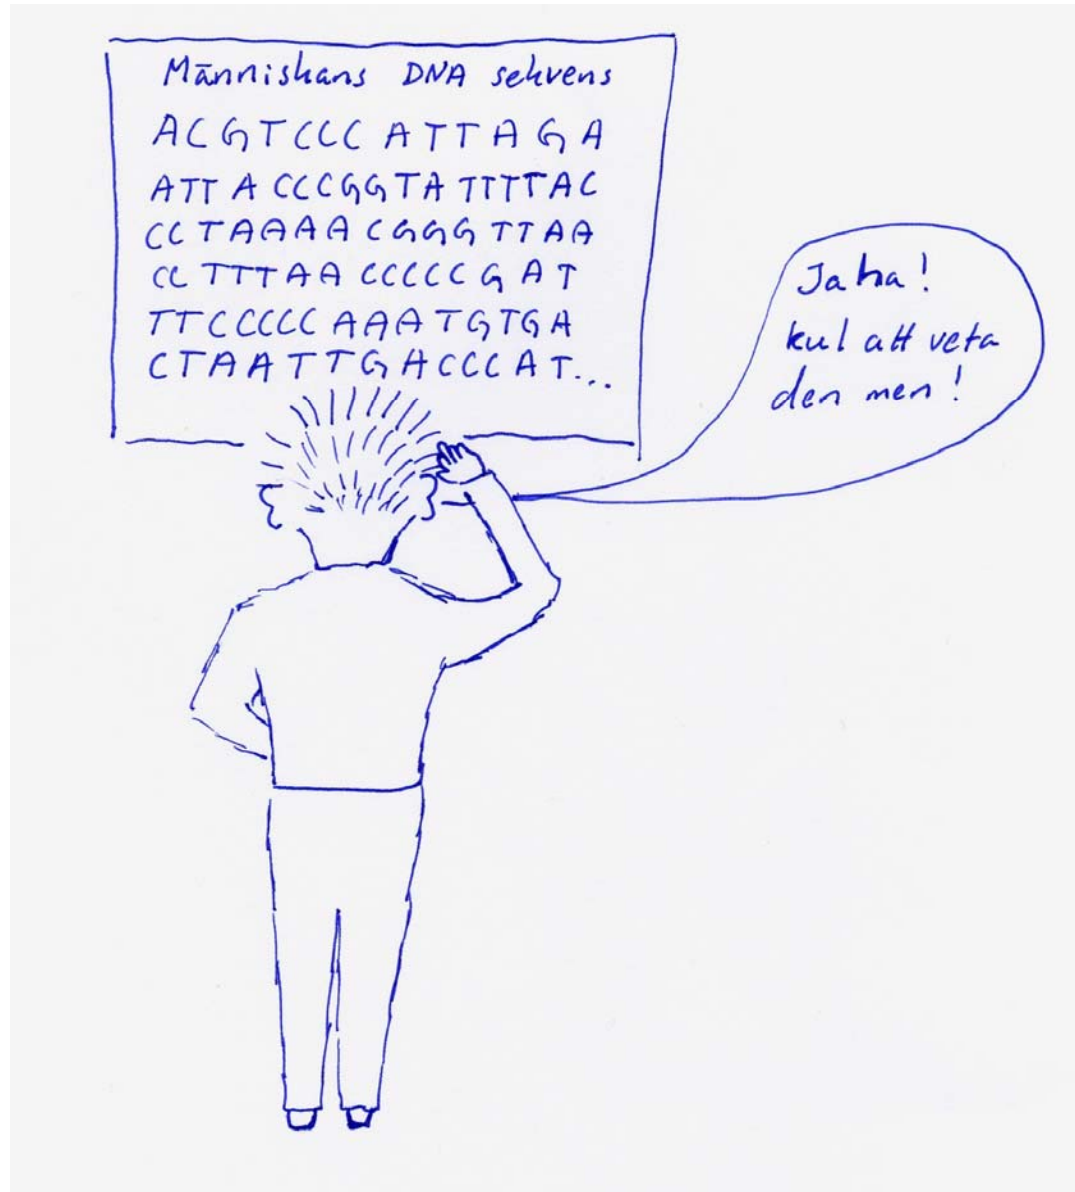 Människans DNA sekvens
ACGTCCC ATTAGA
ATT A CCCGGTA TTTTAC
CCTAAAA CGGG TTAA
CC TTTAA CCCCC GAT
TTCCCCC AAATGTGA
CTAATTGACCCAT...
Jaha!
kul att veta
den men!